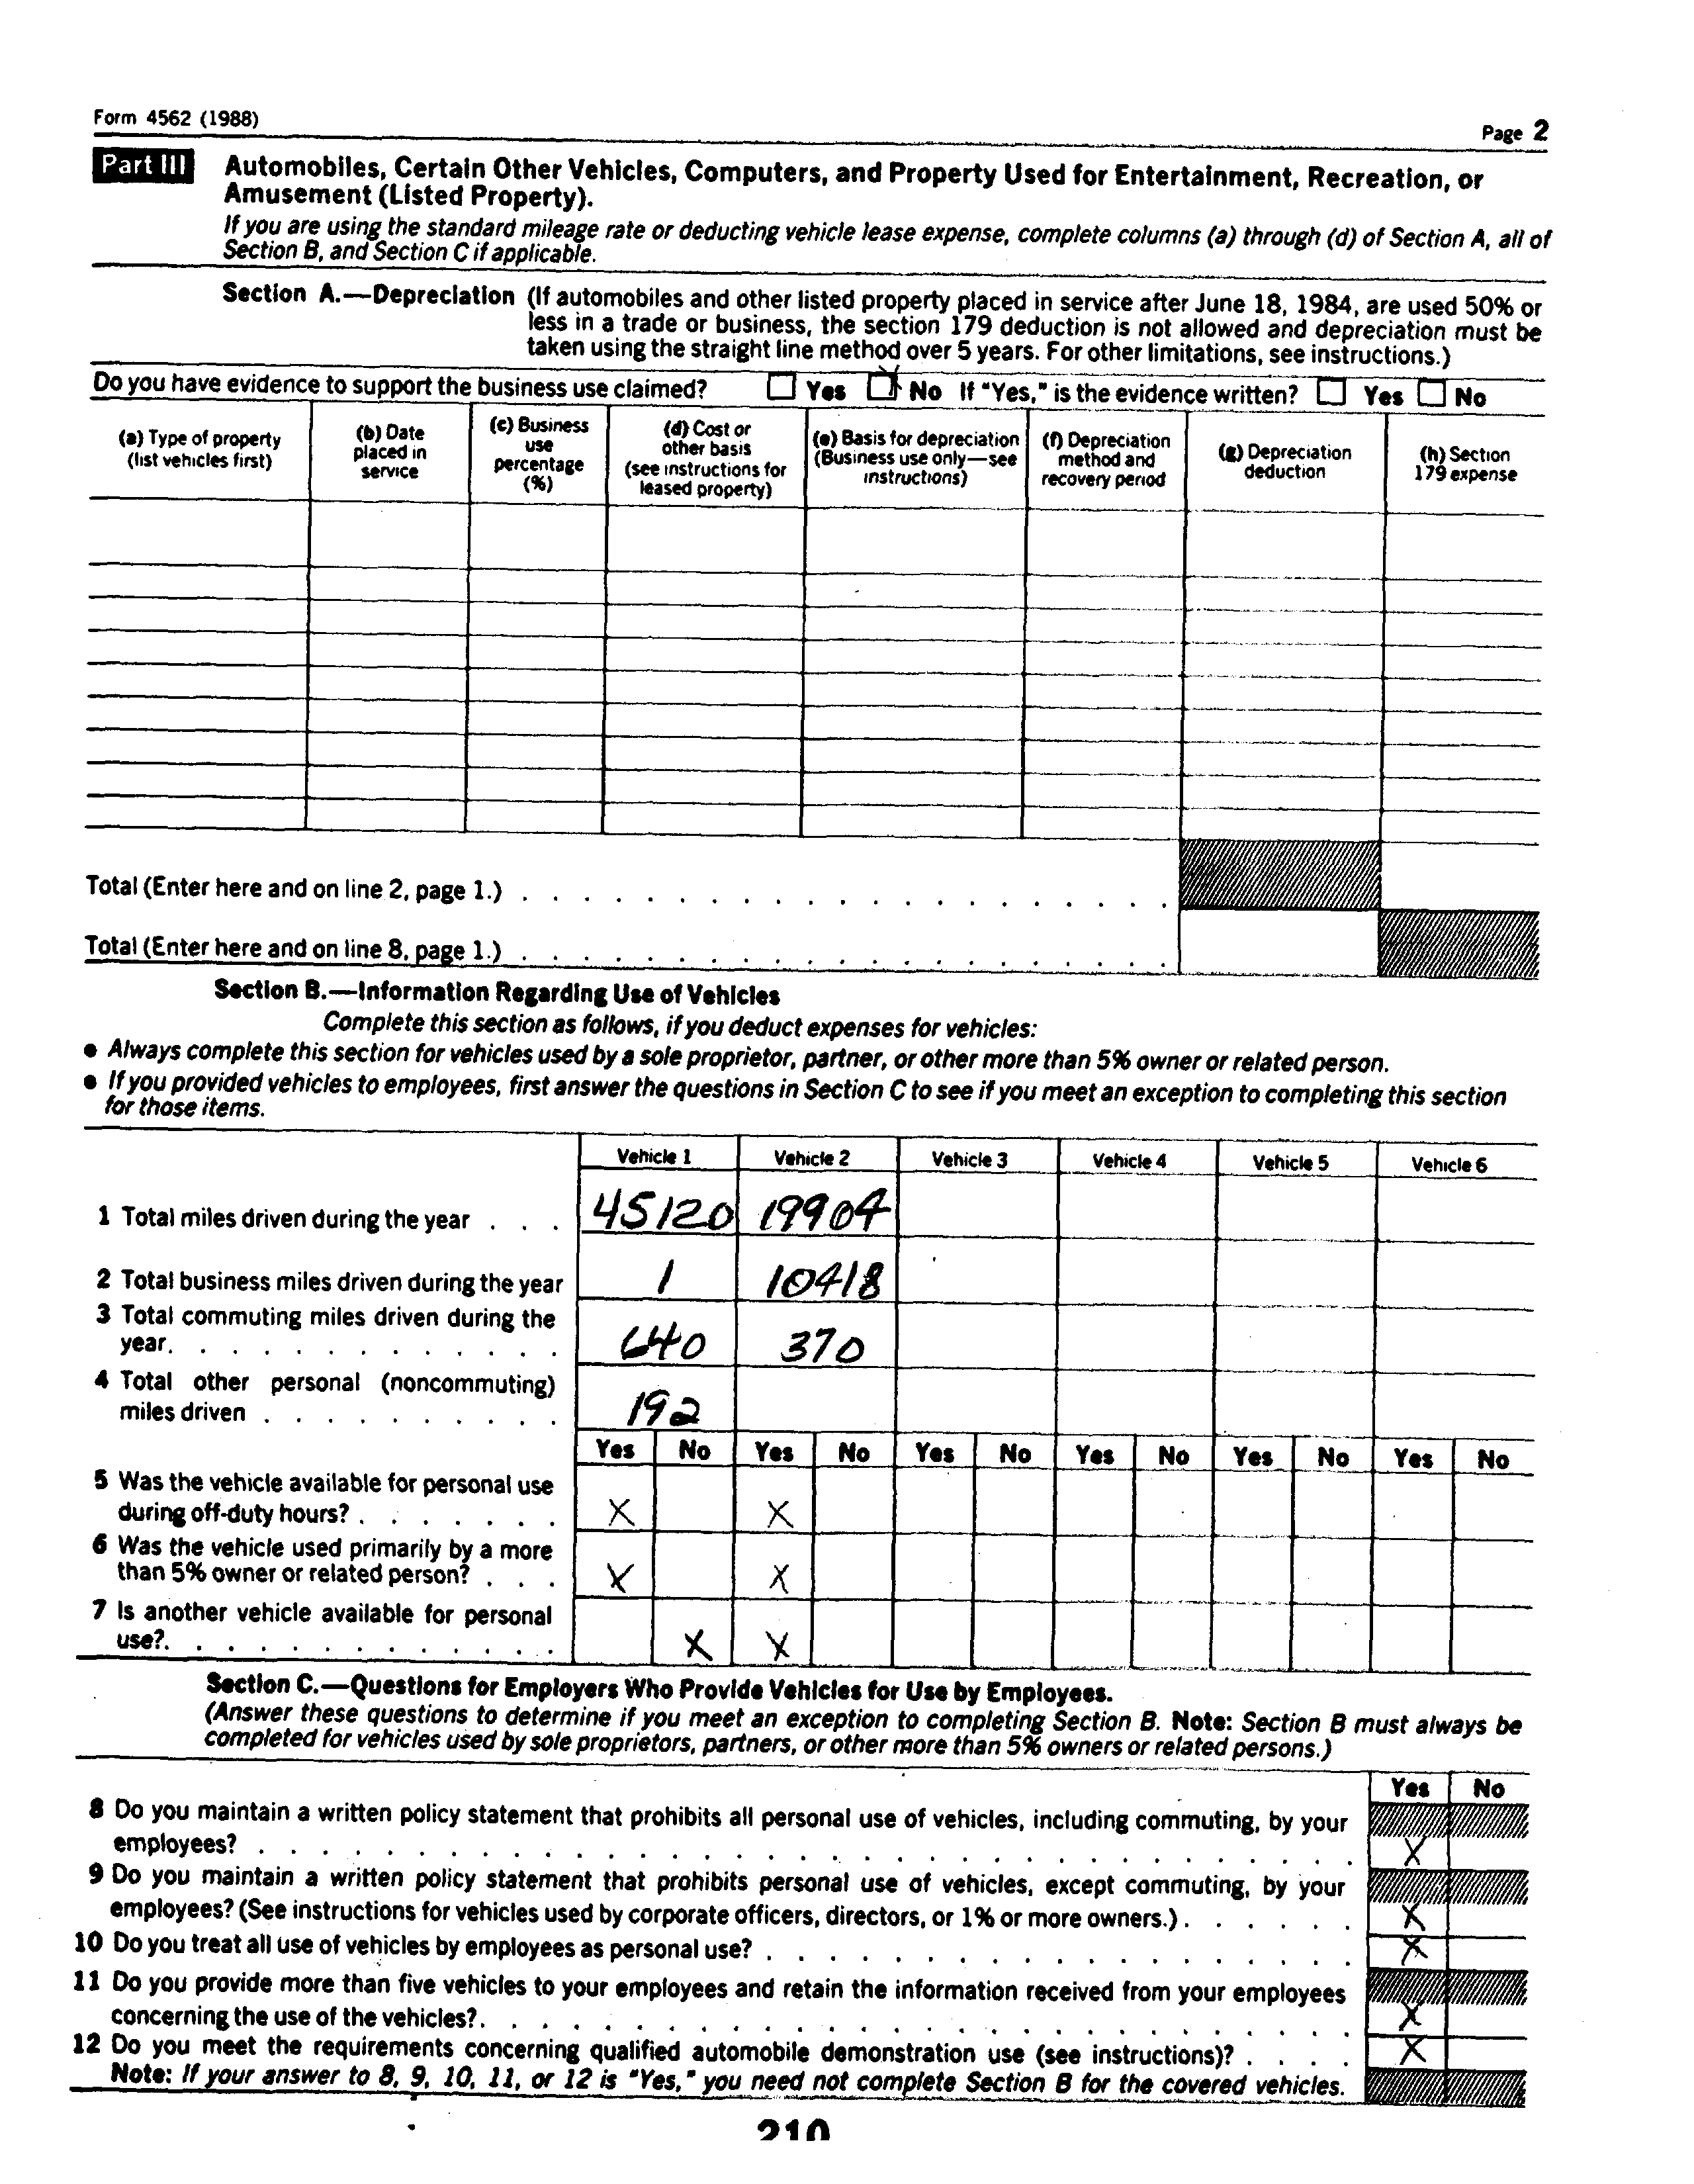 Form 4562 (1988)
Page 2
Part III Automobiles, Certain Other Vehicles, Computers, and Property Used for Entertainment, Recreation, or
Amusement (Listed Property).
If you are using the standard mileage rate or deducting vehicle lease expense, complete columns (a) through (d) of Section A, all of
Section B, and Section C if applicable.
Section A.—Depreciation (If automobiles and other listed property placed in service after June 18, 1984, are used 50% or
less in a trade or business, the section 179 deduction is not allowed and depreciation must be
taken using the straight line method over 5 years. For other limitations, see instructions.)
Do you have evidence to support the business use claimed? ☐ Yes ☒ No If "Yes," is the evidence written? ☐ Yes ☐ No
(a) Type of property
(list vehicles first)
(b) Date
placed in
service
(c) Business
use
percentage
(%)
(d) Cost or
other basis
(see instructions for
leased property)
(e) Basis for depreciation
(Business use only—see
instructions)
(f) Depreciation
method and
recovery period
(g) Depreciation
deduction
(h) Section
179 expense
Total (Enter here and on line 2, page 1.)
Total (Enter here and on line 8, page 1.)
Section B.—Information Regarding Use of Vehicles
Complete this section as follows, if you deduct expenses for vehicles:
● Always complete this section for vehicles used by a sole proprietor, partner, or other more than 5% owner or related person.
● If you provided vehicles to employees, first answer the questions in Section C to see if you meet an exception to completing this section
for those items.
Vehicle 1 Vehicle 2 Vehicle 3 Vehicle 4 Vehicle 5 Vehicle 6
1 Total miles driven during the year . . . 45120 19904
2 Total business miles driven during the year 1 10418
3 Total commuting miles driven during the
year. . . . . . . . . . . . . 640 370
4 Total other personal (noncommuting)
miles driven . . . . . . . . . . 192
Yes No Yes No Yes No Yes No Yes No Yes No
5 Was the vehicle available for personal use
during off-duty hours? . . . . . . . X X
6 Was the vehicle used primarily by a more
than 5% owner or related person? . . . X X
7 Is another vehicle available for personal
use?. . . . . . . . . . . . . X X
Section C.—Questions for Employers Who Provide Vehicles for Use by Employees.
(Answer these questions to determine if you meet an exception to completing Section B. Note: Section B must always be
completed for vehicles used by sole proprietors, partners, or other more than 5% owners or related persons.)
Yes No
8 Do you maintain a written policy statement that prohibits all personal use of vehicles, including commuting, by your
employees? X
9 Do you maintain a written policy statement that prohibits personal use of vehicles, except commuting, by your
employees? (See instructions for vehicles used by corporate officers, directors, or 1% or more owners.) . . . . . . X
10 Do you treat all use of vehicles by employees as personal use? X
11 Do you provide more than five vehicles to your employees and retain the information received from your employees
concerning the use of the vehicles?. X
12 Do you meet the requirements concerning qualified automobile demonstration use (see instructions)? . . . . X
Note: If your answer to 8, 9, 10, 11, or 12 is "Yes," you need not complete Section B for the covered vehicles.
210